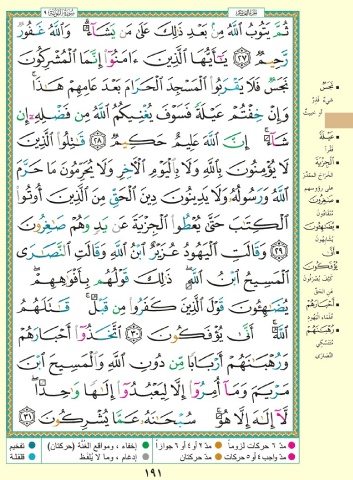 الجزء العاشر
سورة التوبة ٩
ثُمَّ يَتُوبُ اللَّهُ مِنْ بَعْدِ ذَلِكَ عَلَى مَن يَشَاءُ ۗ وَاللَّهُ غَفُورٌ
رَّحِيمٌ ﴿٢٧﴾ يَا أَيُّهَا الَّذِينَ آمَنُوا إِنَّمَا الْمُشْرِكُونَ
نَجَسٌ فَلَا يَقْرَبُوا الْمَسْجِدَ الْحَرَامَ بَعْدَ عَامِهِمْ هَٰذَا ۚ
وَإِنْ خِفْتُمْ عَيْلَةً فَسَوْفَ يُغْنِيكُمُ اللَّهُ مِن فَضْلِهِ إِن
شَاءَ ۚ إِنَّ اللَّهَ عَلِيمٌ حَكِيمٌ ﴿٢٨﴾ قَاتِلُوا الَّذِينَ
لَا يُؤْمِنُونَ بِاللَّهِ وَلَا بِالْيَوْمِ الْآخِرِ وَلَا يُحَرِّمُونَ مَا حَرَّمَ
اللَّهُ وَرَسُولُهُ وَلَا يَدِينُونَ دِينَ الْحَقِّ مِنَ الَّذِينَ أُوتُوا
الْكِتَابَ حَتَّىٰ يُعْطُوا الْجِزْيَةَ عَن يَدٍ وَهُمْ صَاغِرُونَ
﴿٢٩﴾ وَقَالَتِ الْيَهُودُ عُزَيْرٌ ابْنُ اللَّهِ وَقَالَتِ النَّصَارَى
الْمَسِيحُ ابْنُ اللَّهِ ۖ ذَٰلِكَ قَوْلُهُم بِأَفْوَاهِهِمْ ۖ
يُضَاهِئُونَ قَوْلَ الَّذِينَ كَفَرُوا مِن قَبْلُ ۚ قَاتَلَهُمُ
اللَّهُ ۚ أَنَّىٰ يُؤْفَكُونَ ﴿٣٠﴾ اتَّخَذُوا أَحْبَارَهُمْ
وَرُهْبَانَهُمْ أَرْبَابًا مِّن دُونِ اللَّهِ وَالْمَسِيحَ ابْنَ
مَرْيَمَ وَمَا أُمِرُوا إِلَّا لِيَعْبُدُوا إِلَٰهًا وَاحِدًا ۖ
لَّا إِلَٰهَ إِلَّا هُوَ ۚ سُبْحَانَهُ عَمَّا يُشْرِكُونَ ﴿٣١﴾
نَجَسٌ
شيء قذر
أو خبيث
عَيْلَةً
فقراً
الْجِزْيَةَ
الخراج المقدّر
على رؤوسهم
صَاغِرُونَ
منقادون
يُضَاهِئُونَ
يشابهون
أَنَّىٰ
يُؤْفَكُونَ
كيف يُصرفون
عن الحق
أَحْبَارَهُمْ
علماء اليهود
رُهْبَانَهُمْ
متنسكي
النصارى
مدّ ٦ حركات لزوماً
مدّ ٢ أو ٤ أو ٦ جوازاً
إخفاء، ومواقع الغنّة (حركتان)
تفخيم
مدّ واجب ٤ أو ٥ حركات
مدّ حركتان
إدغام، وما لا يُلفظ
قلقلة
١٩١